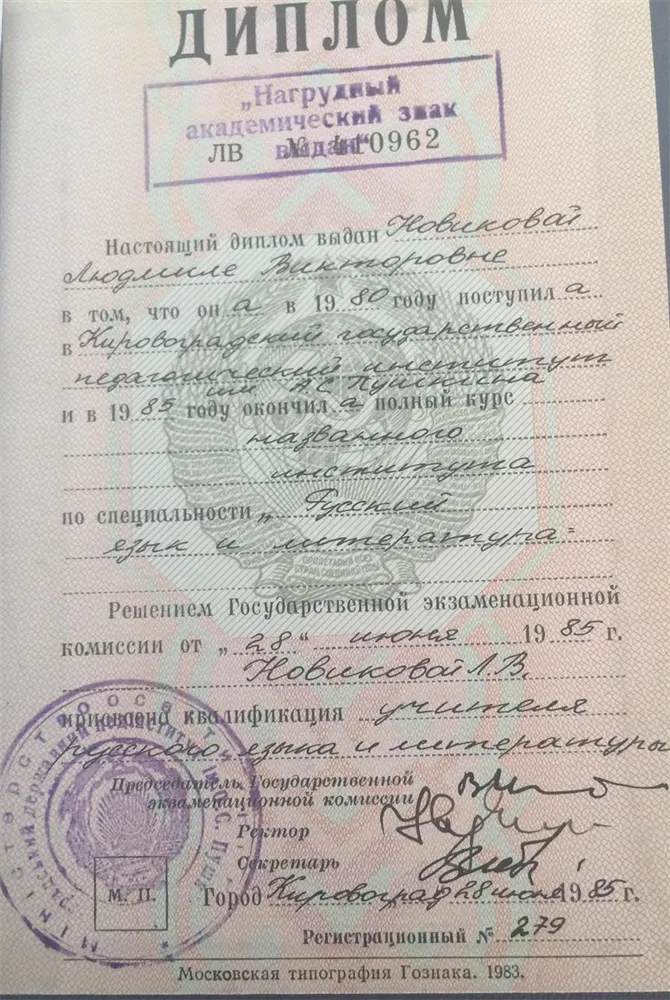 ДИПЛОМ
„Нагрудный
академический знак
выдан“
ЛВ № 410962
Настоящий диплом выдан Новиковой
Людмиле Викторовне
в том, что он а в 1980 году поступил а
в Кировоградский государственный
педагогический институт
им АС Пушкина
и в 1985 году окончил а полный курс
названного
института
по специальности „Русский
язык и литература"
Решением Государственной экзаменационной
комиссии от „28“ июня 1985 г.
Новиковой Л.В.
присвоена квалификация учителя
русского языка и литературы
Председатель Государственной
экзаменационной комиссии
Ректор
Секретарь
М. П.
Город Кировоград 28 июня 1985 г.
Регистрационный № 279
Московская типография Гознака. 1983.